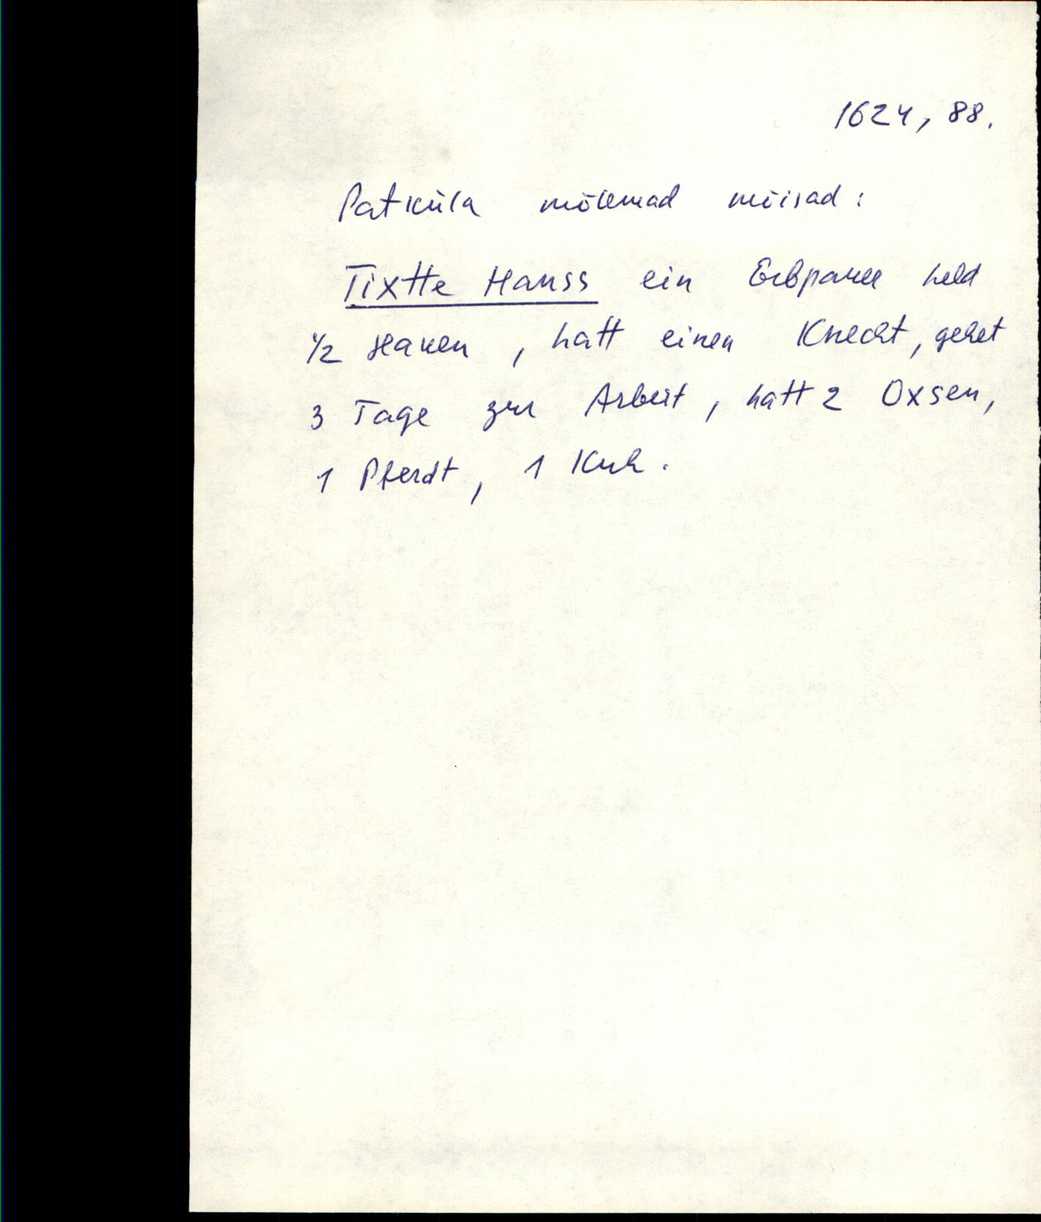 1624, 88.
Patküla mõlemad mõisad:
Tixtte Hanss ein Erbpauer held
1/2 Haken, hatt einen Knecht, gehet
3 Tage zur Arbeit, hatt 2 Oxsen,
1 Pferdt, 1 Kuh.